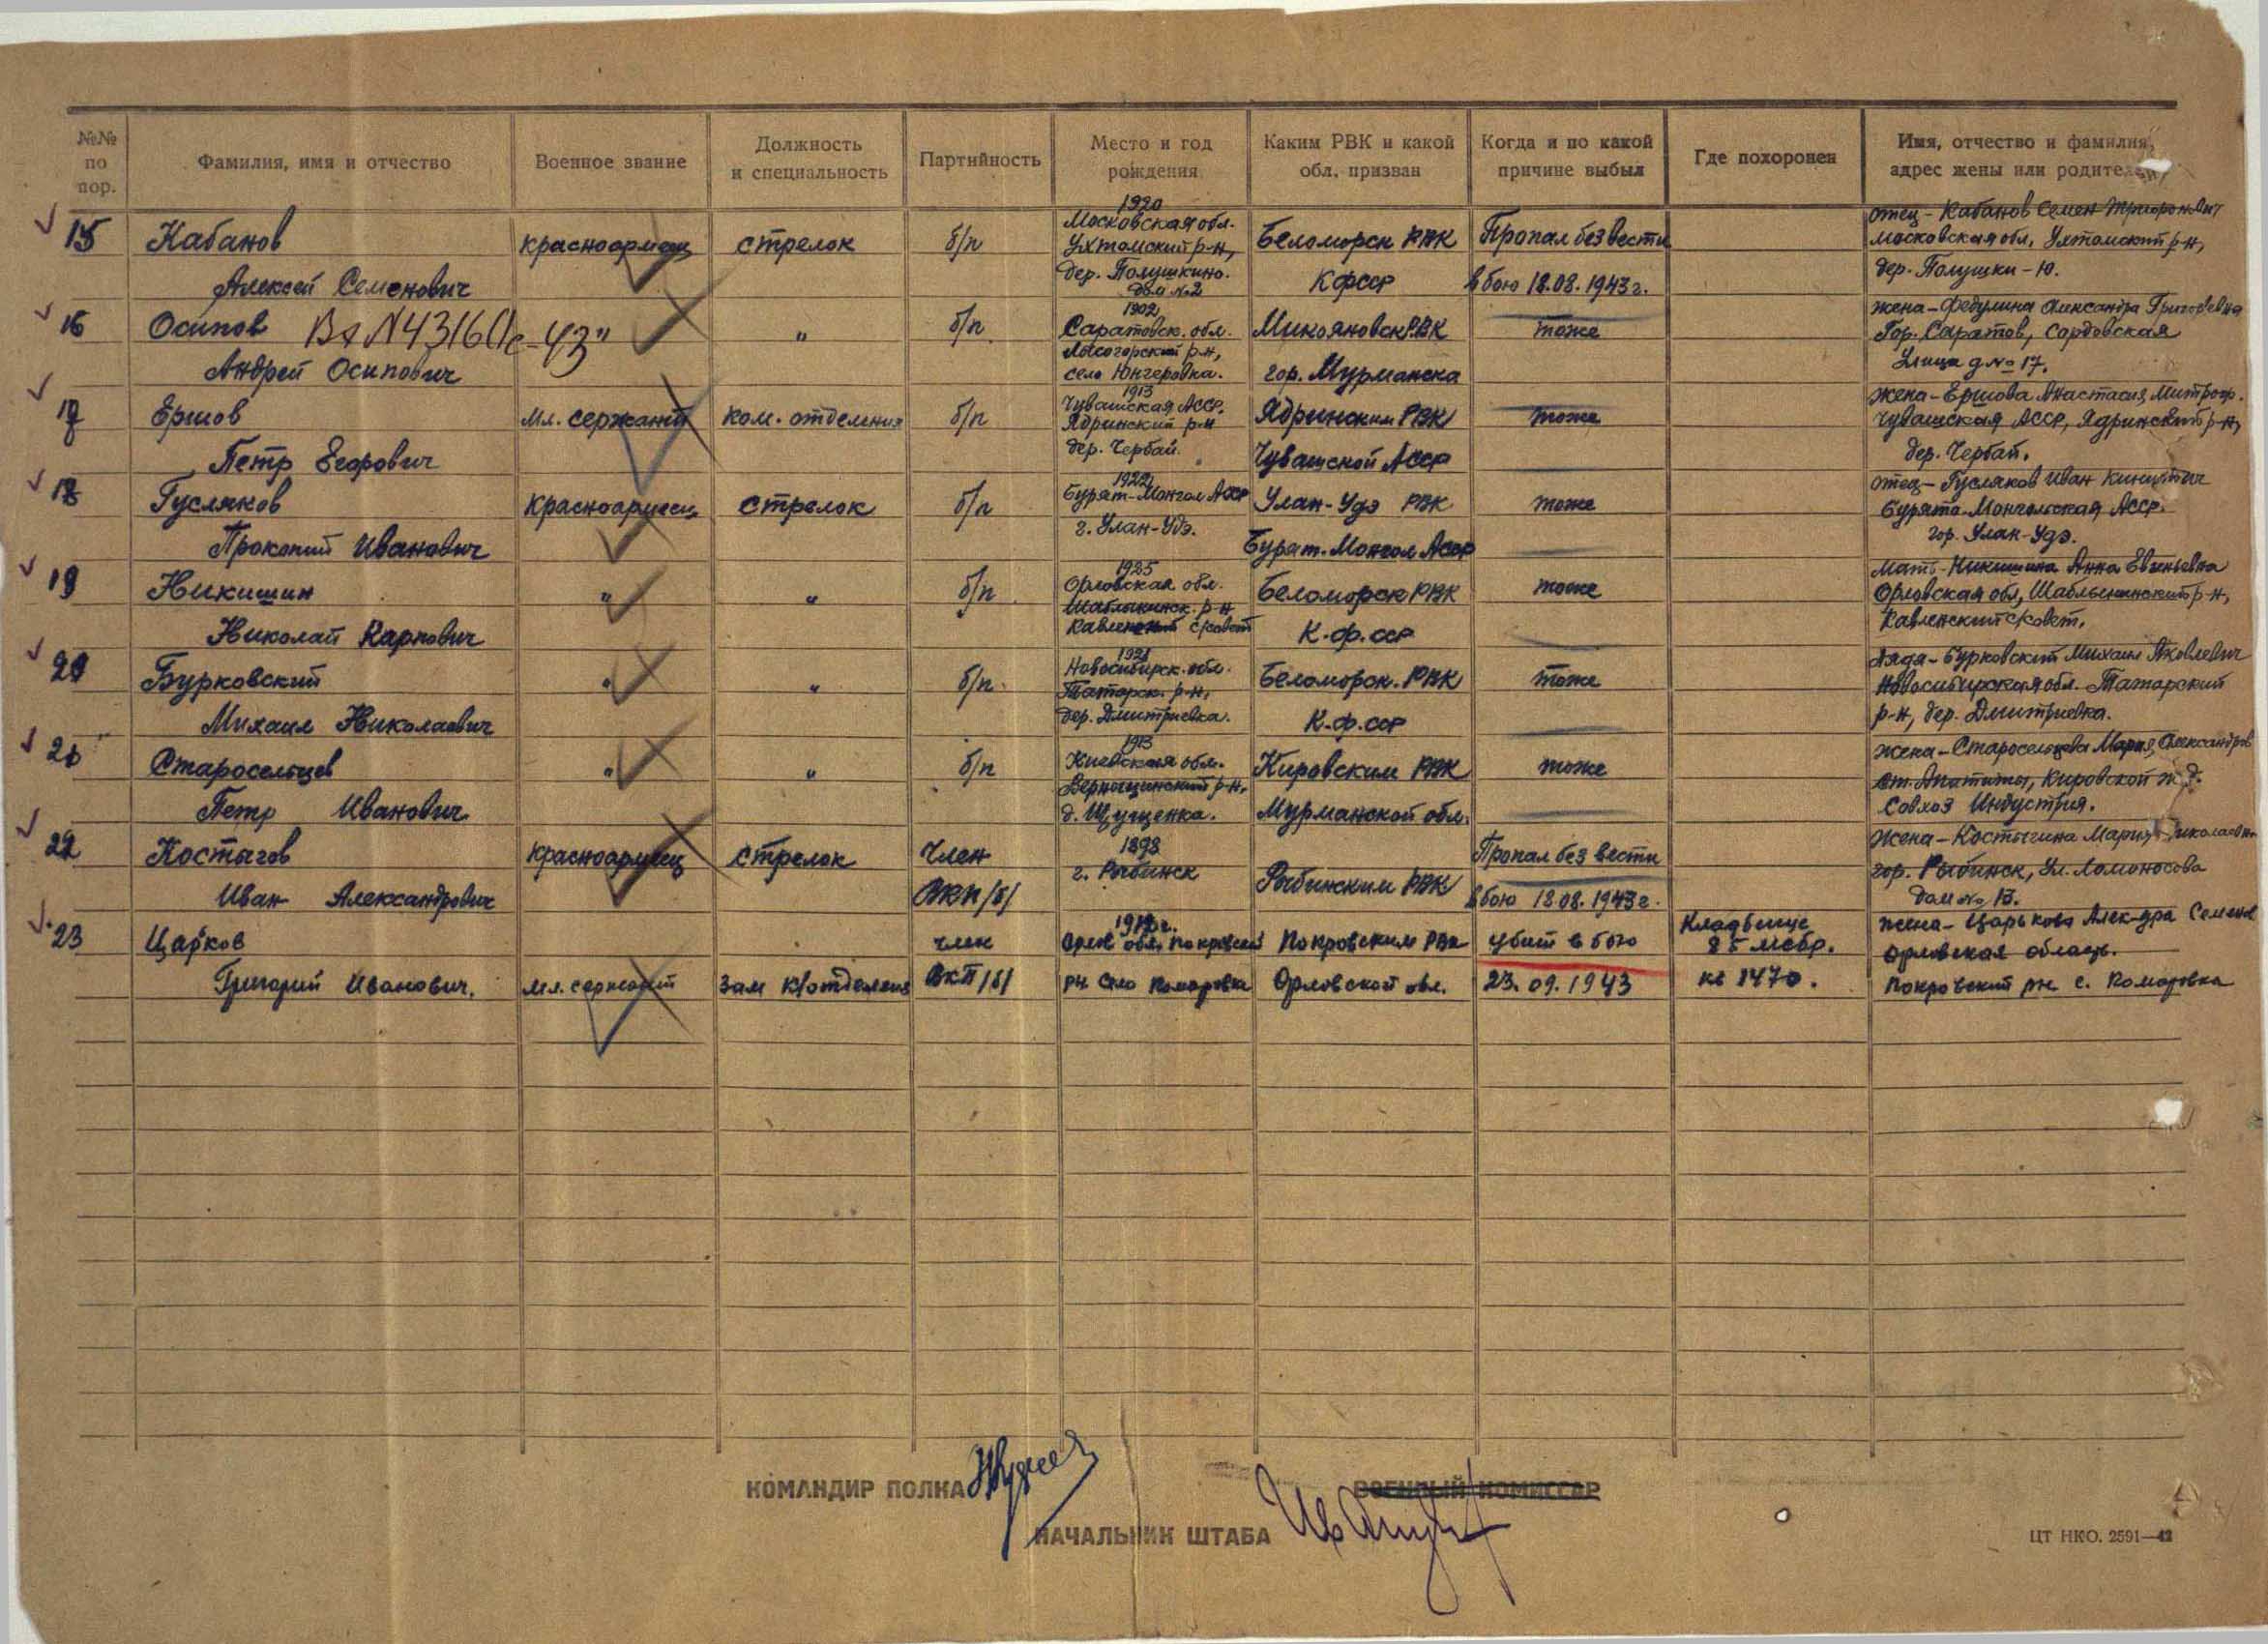 №№ по пор.
Фамилия, имя и отчество
Военное звание
Должность и специальность
Партийность
Место и год рождения
Каким РВК и какой обл. призван
Когда и по какой причине выбыл
Где похоронен
Имя, отчество и фамилия, адрес жены или
15 Кабанов красноармеец стрелок б/п 1920 Московская обл. Ухтомский р-н, дер. Полушкино. Беломорск РВК Пропал без вести отец - Кабанов Семен
Алексей Семенович КФССР в бою 18.08.1943г. Московская обл, Ухтомский р-н, дер. Полушки-Ю.
16 Осипов " б/п 1902 Саратовск. обл. Лысогорский р-н, село Юнгеровка. Микояновск РВК тоже жена - Федулина Александра Григорьевна
Андрей Осипович гор. Мурманска Гор. Саратов, Улица д № 17.
17 Ершов Мл. сержант ком. отделения б/п 1913 Чувашская АССР. Ядринский р-н дер. Чербай. Ядринским РВК тоже жена - Ершова Анастасия Митроф.
Петр Егорович Чувашской АССР Чувашская АССР, Ядринский р-н, дер. Чербай.
18 Гусляков Красноармеец стрелок б/п 1922 Бурят-Монгол АССР г. Улан-Удэ. Улан-Удэ РВК тоже отец - Гусляков Иван
Прокопий Иванович Бурят. Монгол АССР Бурято-Монгольская АССР. гор. Улан-Удэ.
19 Никишин " " б/п 1925 Орловская обл. Шаблыкинск. р-н Беломорск РВК тоже Мать - Никишина Анна Евгеньевна
Николай Карпович К.ф.сср Орловская обл, Шаблыкинский р-н, Кавленский с/совет.
20 Бурковский " " б/п 1921 Новосибирск. обл. Татарск. р-н, дер. Дмитриевка. Беломорск. РВК тоже Дядя - Бурковский Михаил Яковлевич
Михаил Николаевич К.ф.сср Новосибирская обл. Татарский р-н, дер. Дмитриевка.
21 Старосельцев " " б/п 1913 Киевская обл. д. Щущенка. Кировским РВК тоже жена - Старосельцева Мария Александров
Петр Иванович Мурманской обл. ст. Апатиты, Кировской ж.д. Совхоз Индустрия.
22 Костыгов красноармеец стрелок член 1898 г. Рыбинск Рыбинским РВК Пропал без вести Жена - Костыгина Мария
Иван Александрович ВКП/б/ в бою 18.08.1943г. гор. Рыбинск, Ул. Ломоносова дом № 13.
23 Царьков член Орлов обл. Покровский Покровским РВК убит в бою Кладбище 85 мсбр. жена - Царькова Алек-дра Семенов
Григорий Иванович. Мл. сержант Зам к/отделения ВКП/б/ рн. село Комаровка Орловской обл. 23.09.1943 кв 1470. Орловская область. Покровский рн с. Комаровка
КОМАНДИР ПОЛКА
ВОЕННЫЙ КОМИССАР
НАЧАЛЬНИК ШТАБА
ЦТ НКО. 2591—42